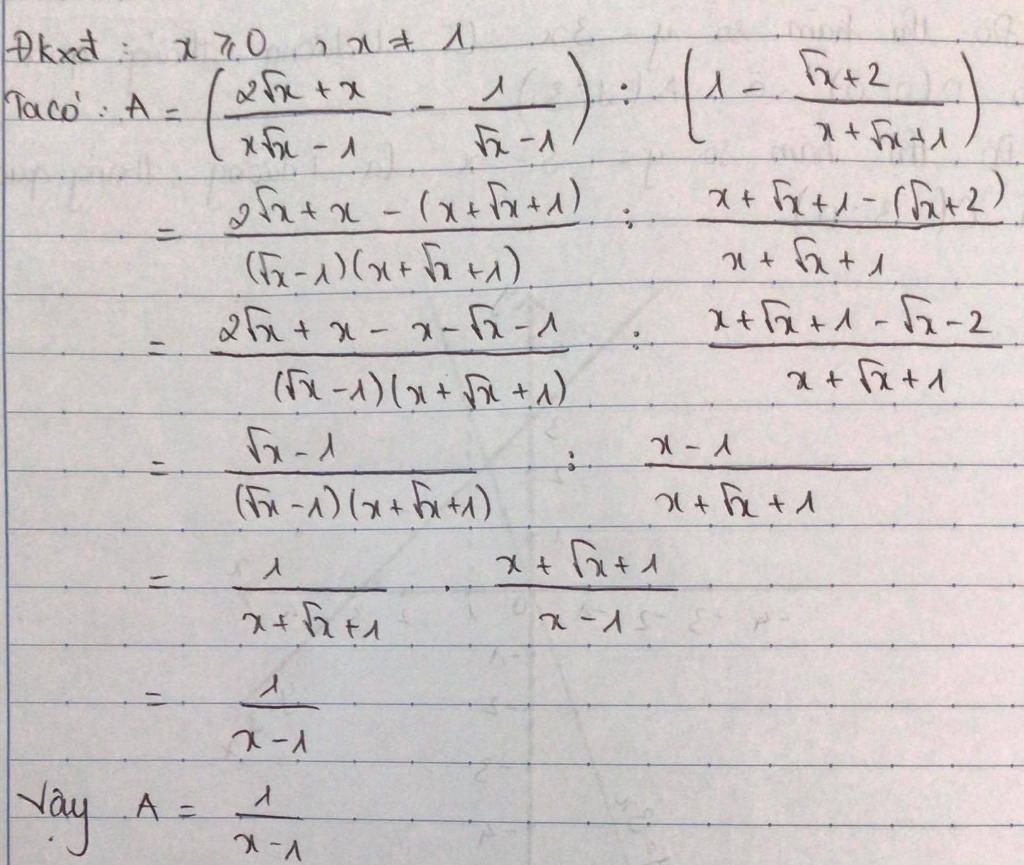 Đkxđ: x ≥ 0, x ≠ 1
Ta có: A = ( (2√x + x)/(x√x - 1) - 1/(√x - 1) ) : ( 1 - (√x + 2)/(x + √x + 1) )
= (2√x + x - (x + √x + 1))/((√x - 1)(x + √x + 1)) : (x + √x + 1 - (√x + 2))/(x + √x + 1)
= (2√x + x - x - √x - 1)/((√x - 1)(x + √x + 1)) : (x + √x + 1 - √x - 2)/(x + √x + 1)
= (√x - 1)/((√x - 1)(x + √x + 1)) : (x - 1)/(x + √x + 1)
= 1/(x + √x + 1) . (x + √x + 1)/(x - 1)
= 1/(x - 1)
Vậy A = 1/(x - 1)